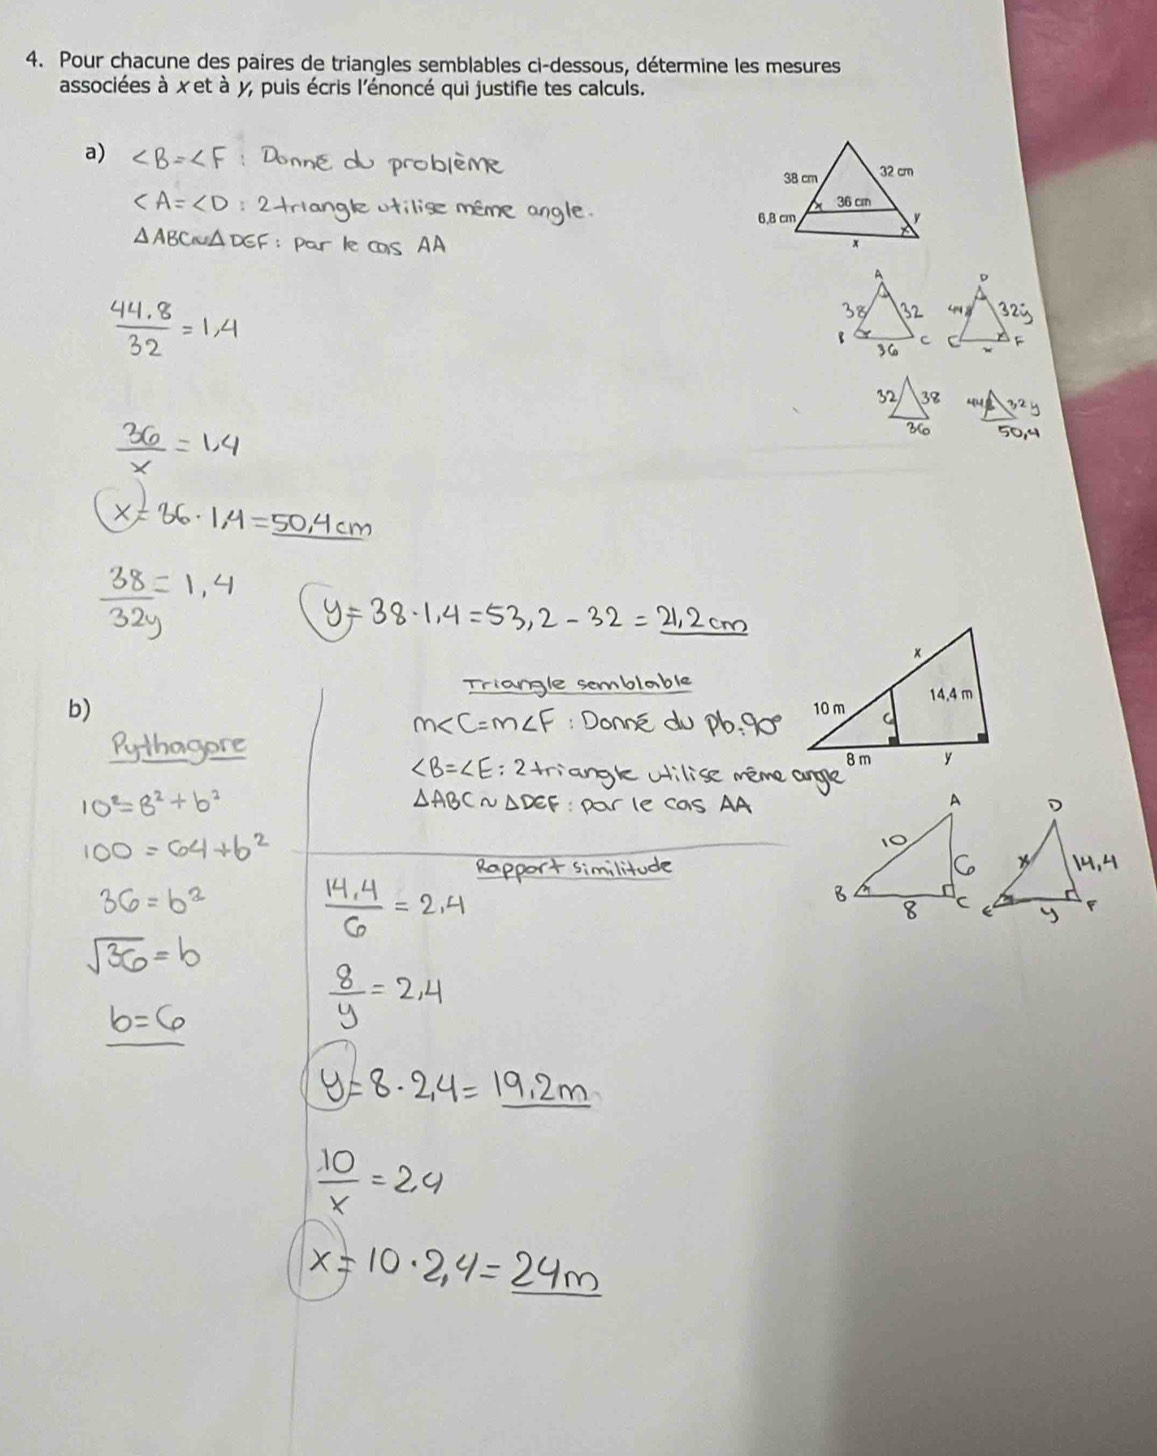 4. Pour chacune des paires de triangles semblables ci-dessous, détermine les mesures
associées à x et à y, puis écris l'énoncé qui justifie tes calculs.
a) <B=<F : Donné du problème
<A=<D : 2 triangle utilise même angle.
ΔABC~ΔDEF : par le cas AA
38 cm
32 cm
x
36 cm
6,8 cm
y
x
x
A
D
38
32
44,8
32y
B
C
E
F
36
x
32
38
44,8
32y
36
50,4
44.8/32 = 1,4
36/x = 1,4
x = 36 · 1,4 = 50,4cm
38/32y = 1,4
y = 38 · 1,4 = 53,2 - 32 = 21,2cm
b)
Pythagore
10²=8²+b²
100 = 64+b²
36 = b²
√36 = b
b=6
Triangle semblable
m<C=m<F : Donné du pb. 90°
<B=<E : 2 triangle utilise même angle
ΔABC ~ ΔDEF : par le cas AA
x
10 m
6
14,4 m
8 m
y
A
D
10
6
x
14,4
B
8
C
E
y
F
Rapport similitude
14.4/6 = 2.4
8/y = 2,4
y = 8 · 2,4 = 19,2m
10/x = 2,4
x = 10 · 2,4 = 24m